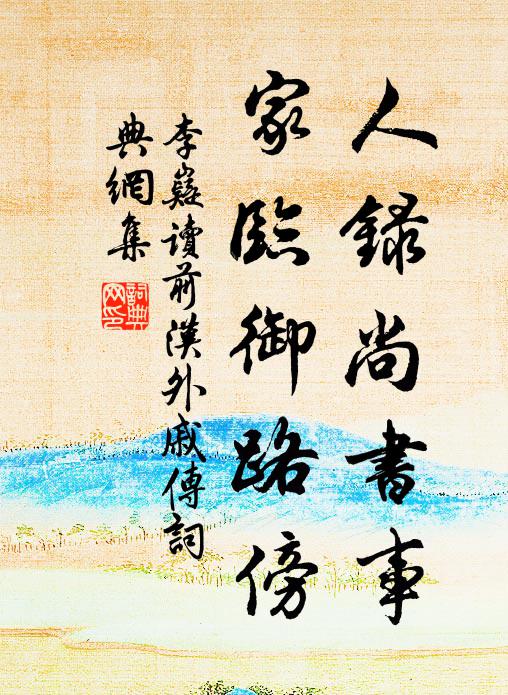 人錄尚書事
家臨御路傍
李嶷讀前漢外戚傳詞
典網集
詞典
网印